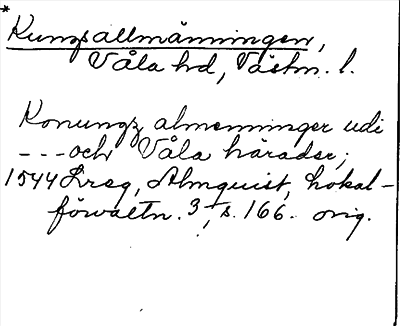 *
Kungsallmänningen,
Våla hd, Västm. l.
Konungz almenninger udi
- - - och Våla häradzr;
1544 Lreg, Almquist, Lokal-
förvaltn. 3, s. 166. orig.